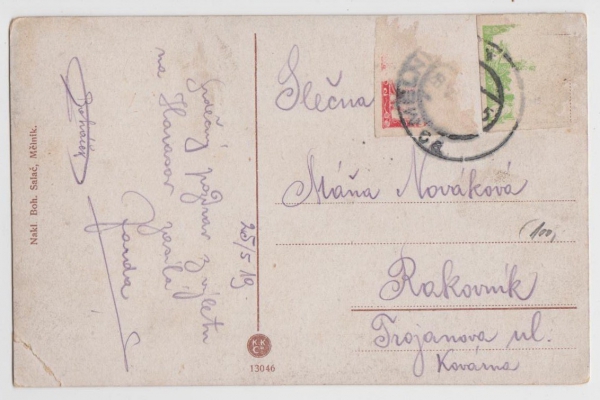 Srdečný pozdrav z výletu
na Harasov zasílá
Jarda
25/5 19.
Nakl. Boh. Salač, Mělník.
K.K.
C.
13046
MĚLN
Slečna
Máňa Nováková
Rakovník
Trojanova ul.
Kovárna